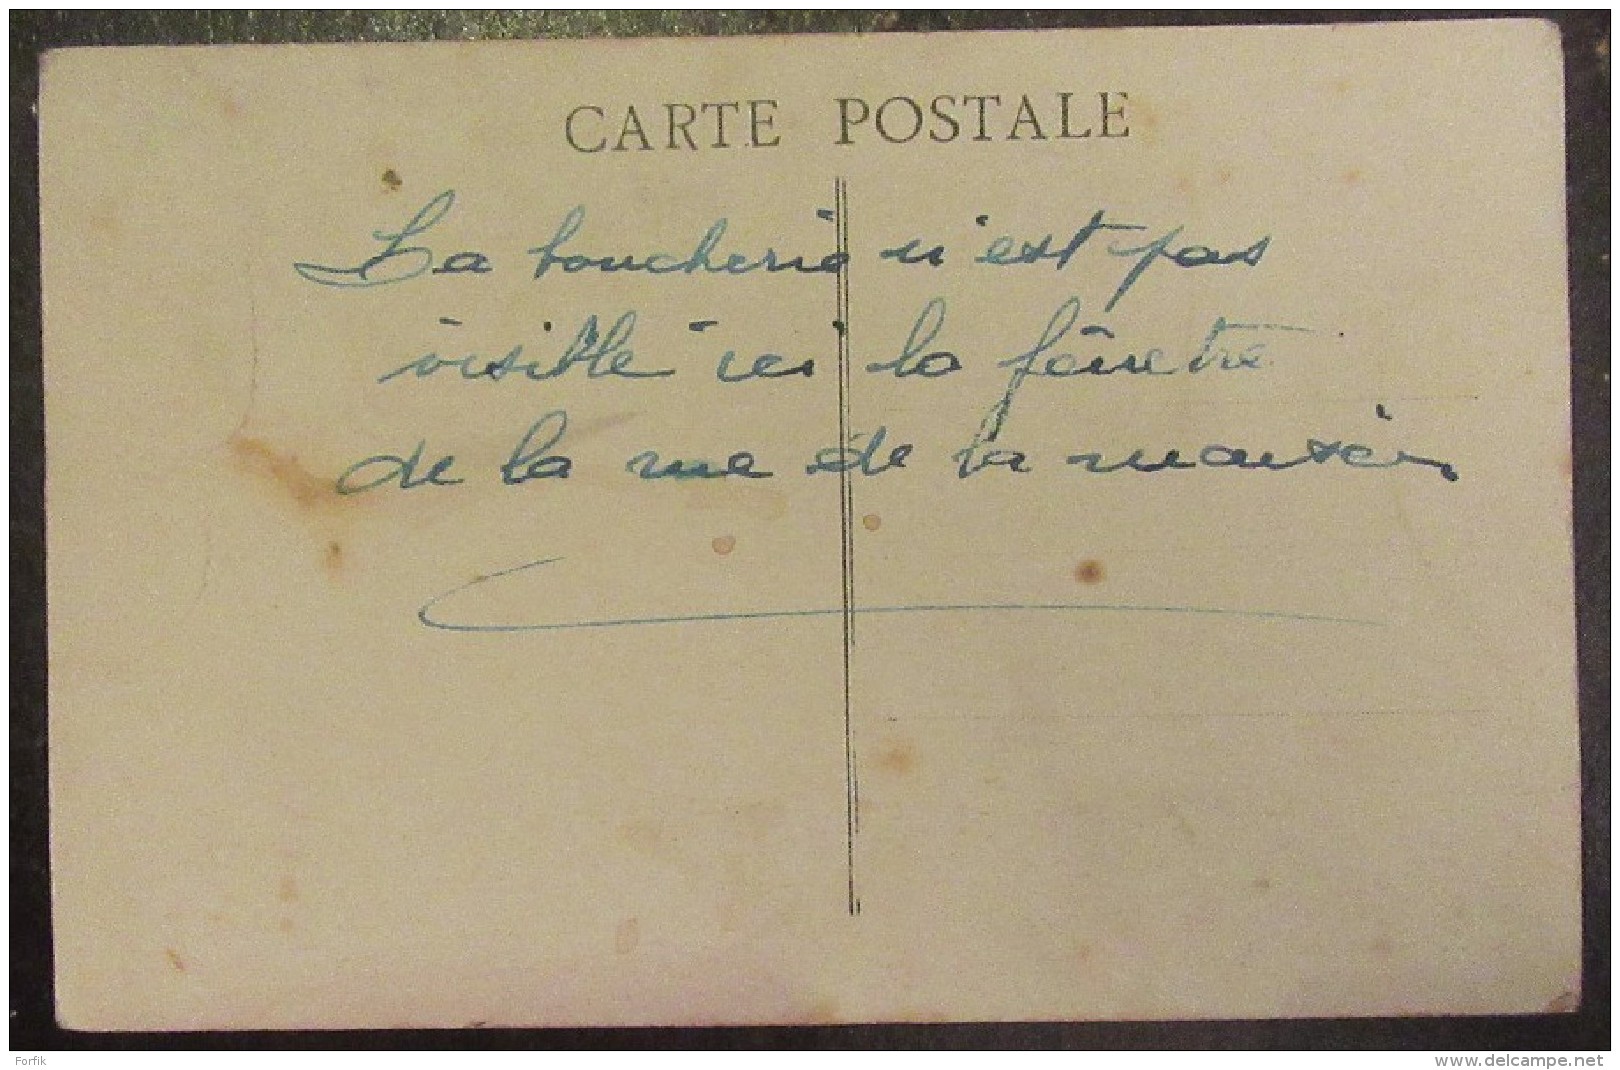 CARTE POSTALE
La boucherie n'est pas
visible ici la fênetre
de la rue de la maison
Forfik
www.delcampe.net